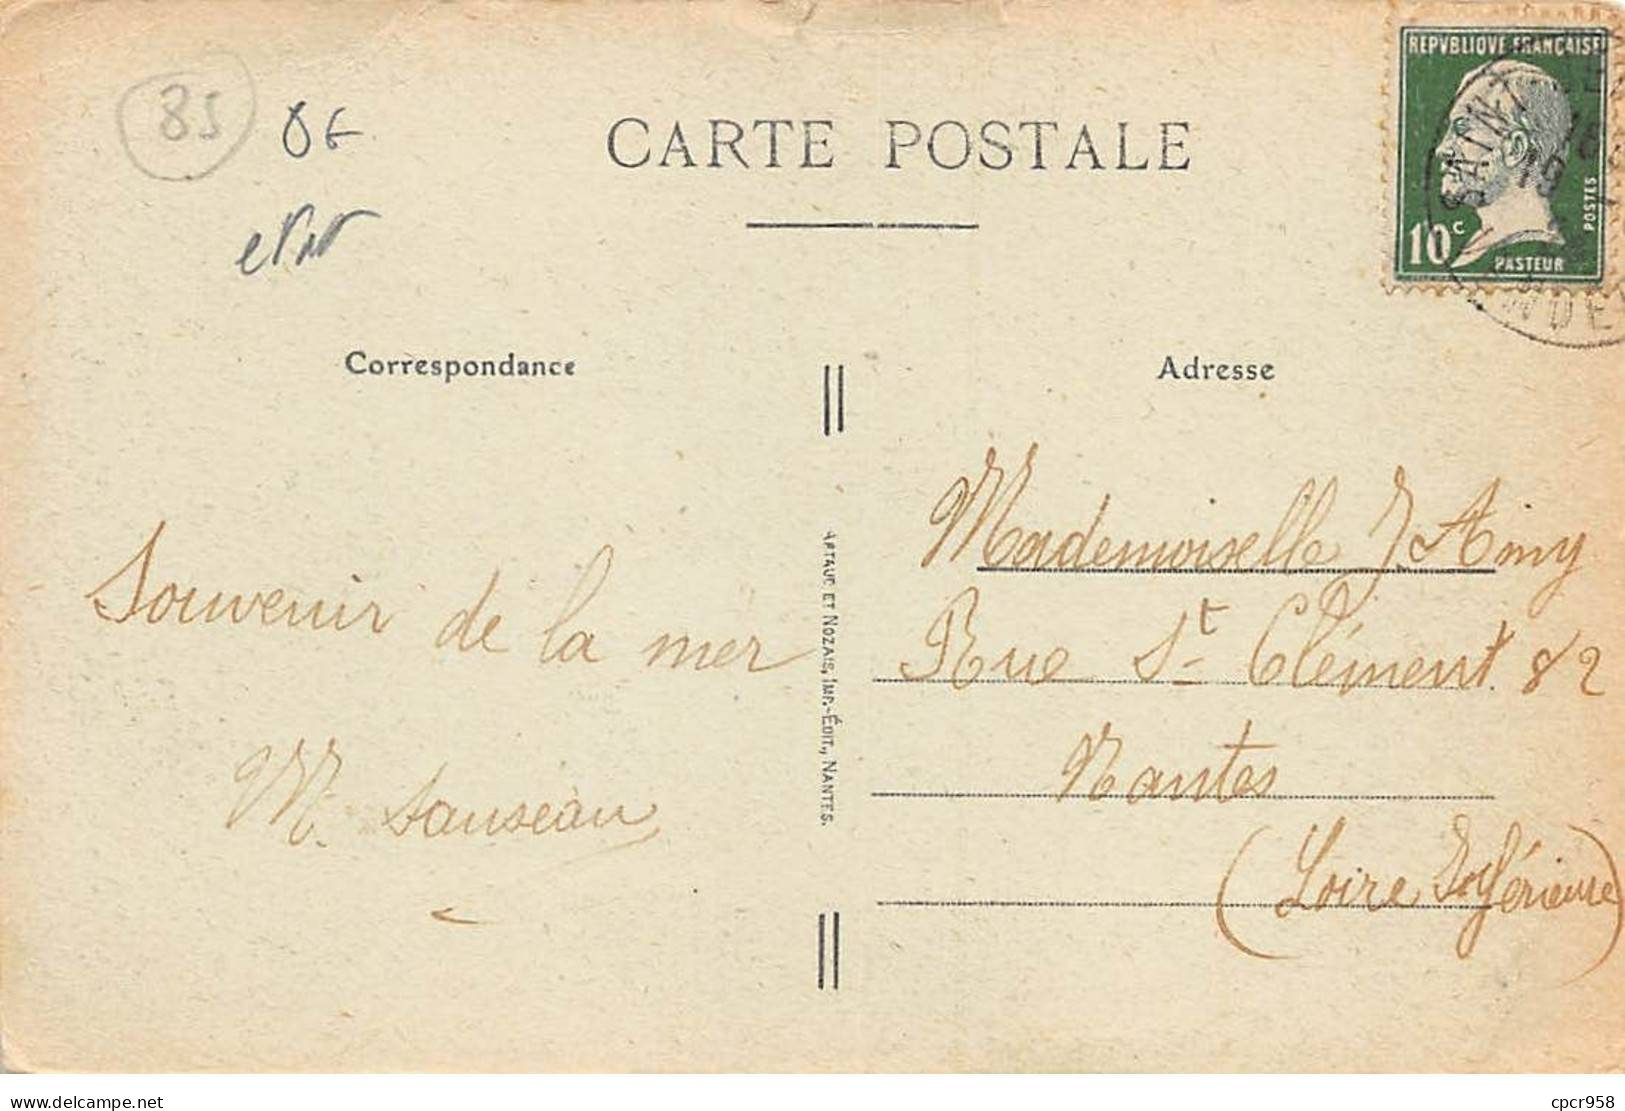 85
CARTE POSTALE
REPVBLIQVE FRANÇAISE
10c
POSTES
PASTEUR
SAINT
16
19
Correspondance
Adresse
Souvenir de la mer
M. Sauseau
ARTAUD ET NOZAIS, IMP.-ÉDIT., NANTES.
Mademoiselle J. Aimy
Rue St Clément. 82
Nantes
(Loire Inférieure)
delcampe.net
cpcr958